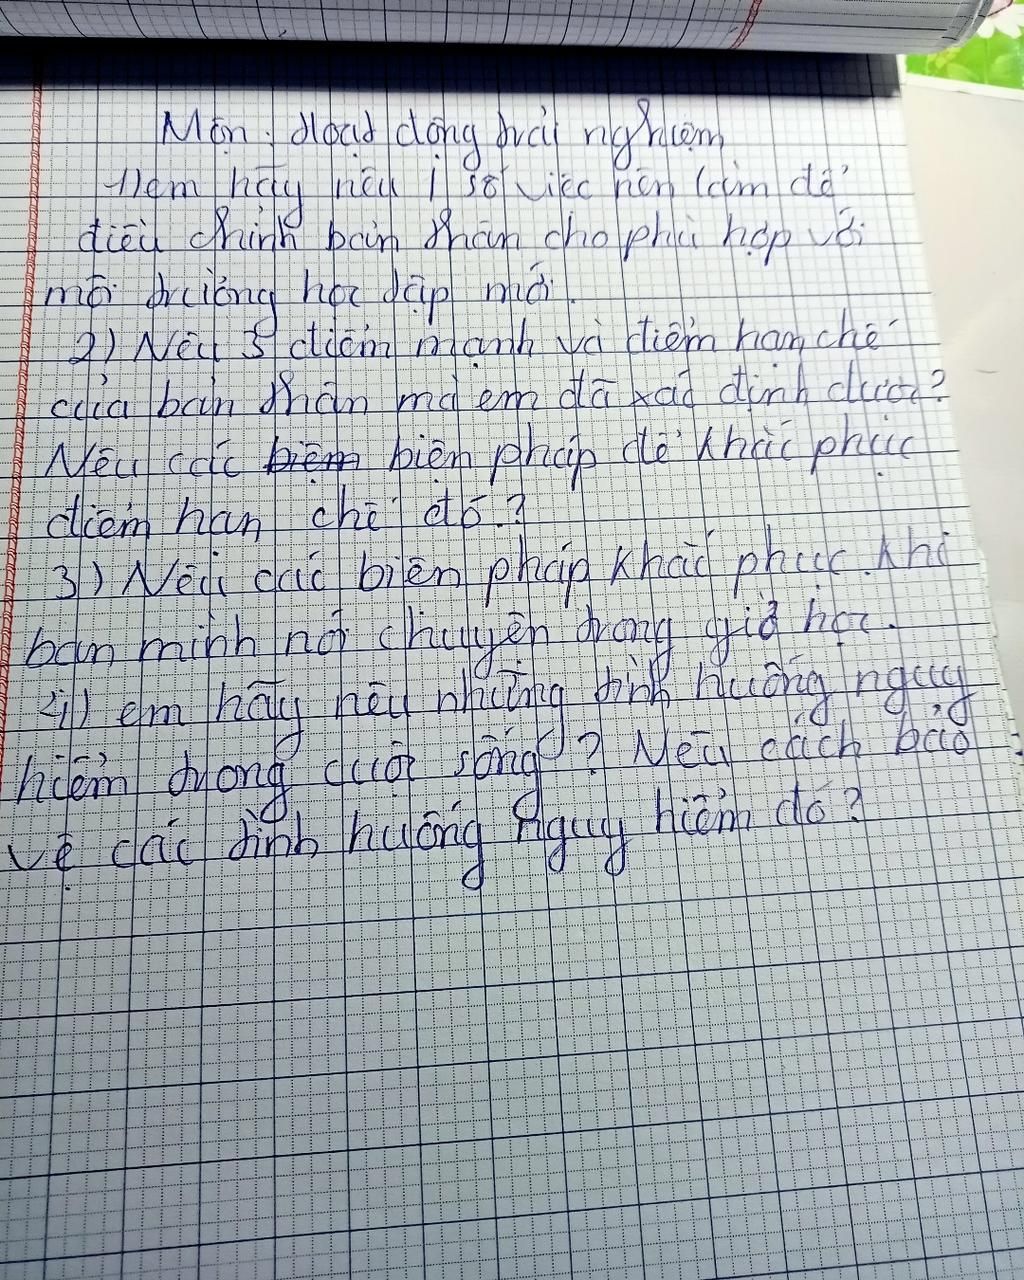 Môn: Hoạt động trải nghiệm
1) em hãy nêu 1 số việc nên làm để
điều chỉnh bản thân cho phù hợp với
môi trường học tập mới.
2) Nêu 3 điểm mạnh và điểm hạn chế
của bản thân mà em đã xác định được?
Nêu các biện pháp để khắc phục
điểm hạn chế đó?
3) Nêu các biện pháp khắc phục khi
bạn mình nói chuyện trong giờ học.
4) em hãy nêu những tình huống nguy
hiểm trong cuộc sống? Nêu cách bảo
vệ các tình huống nguy hiểm đó?